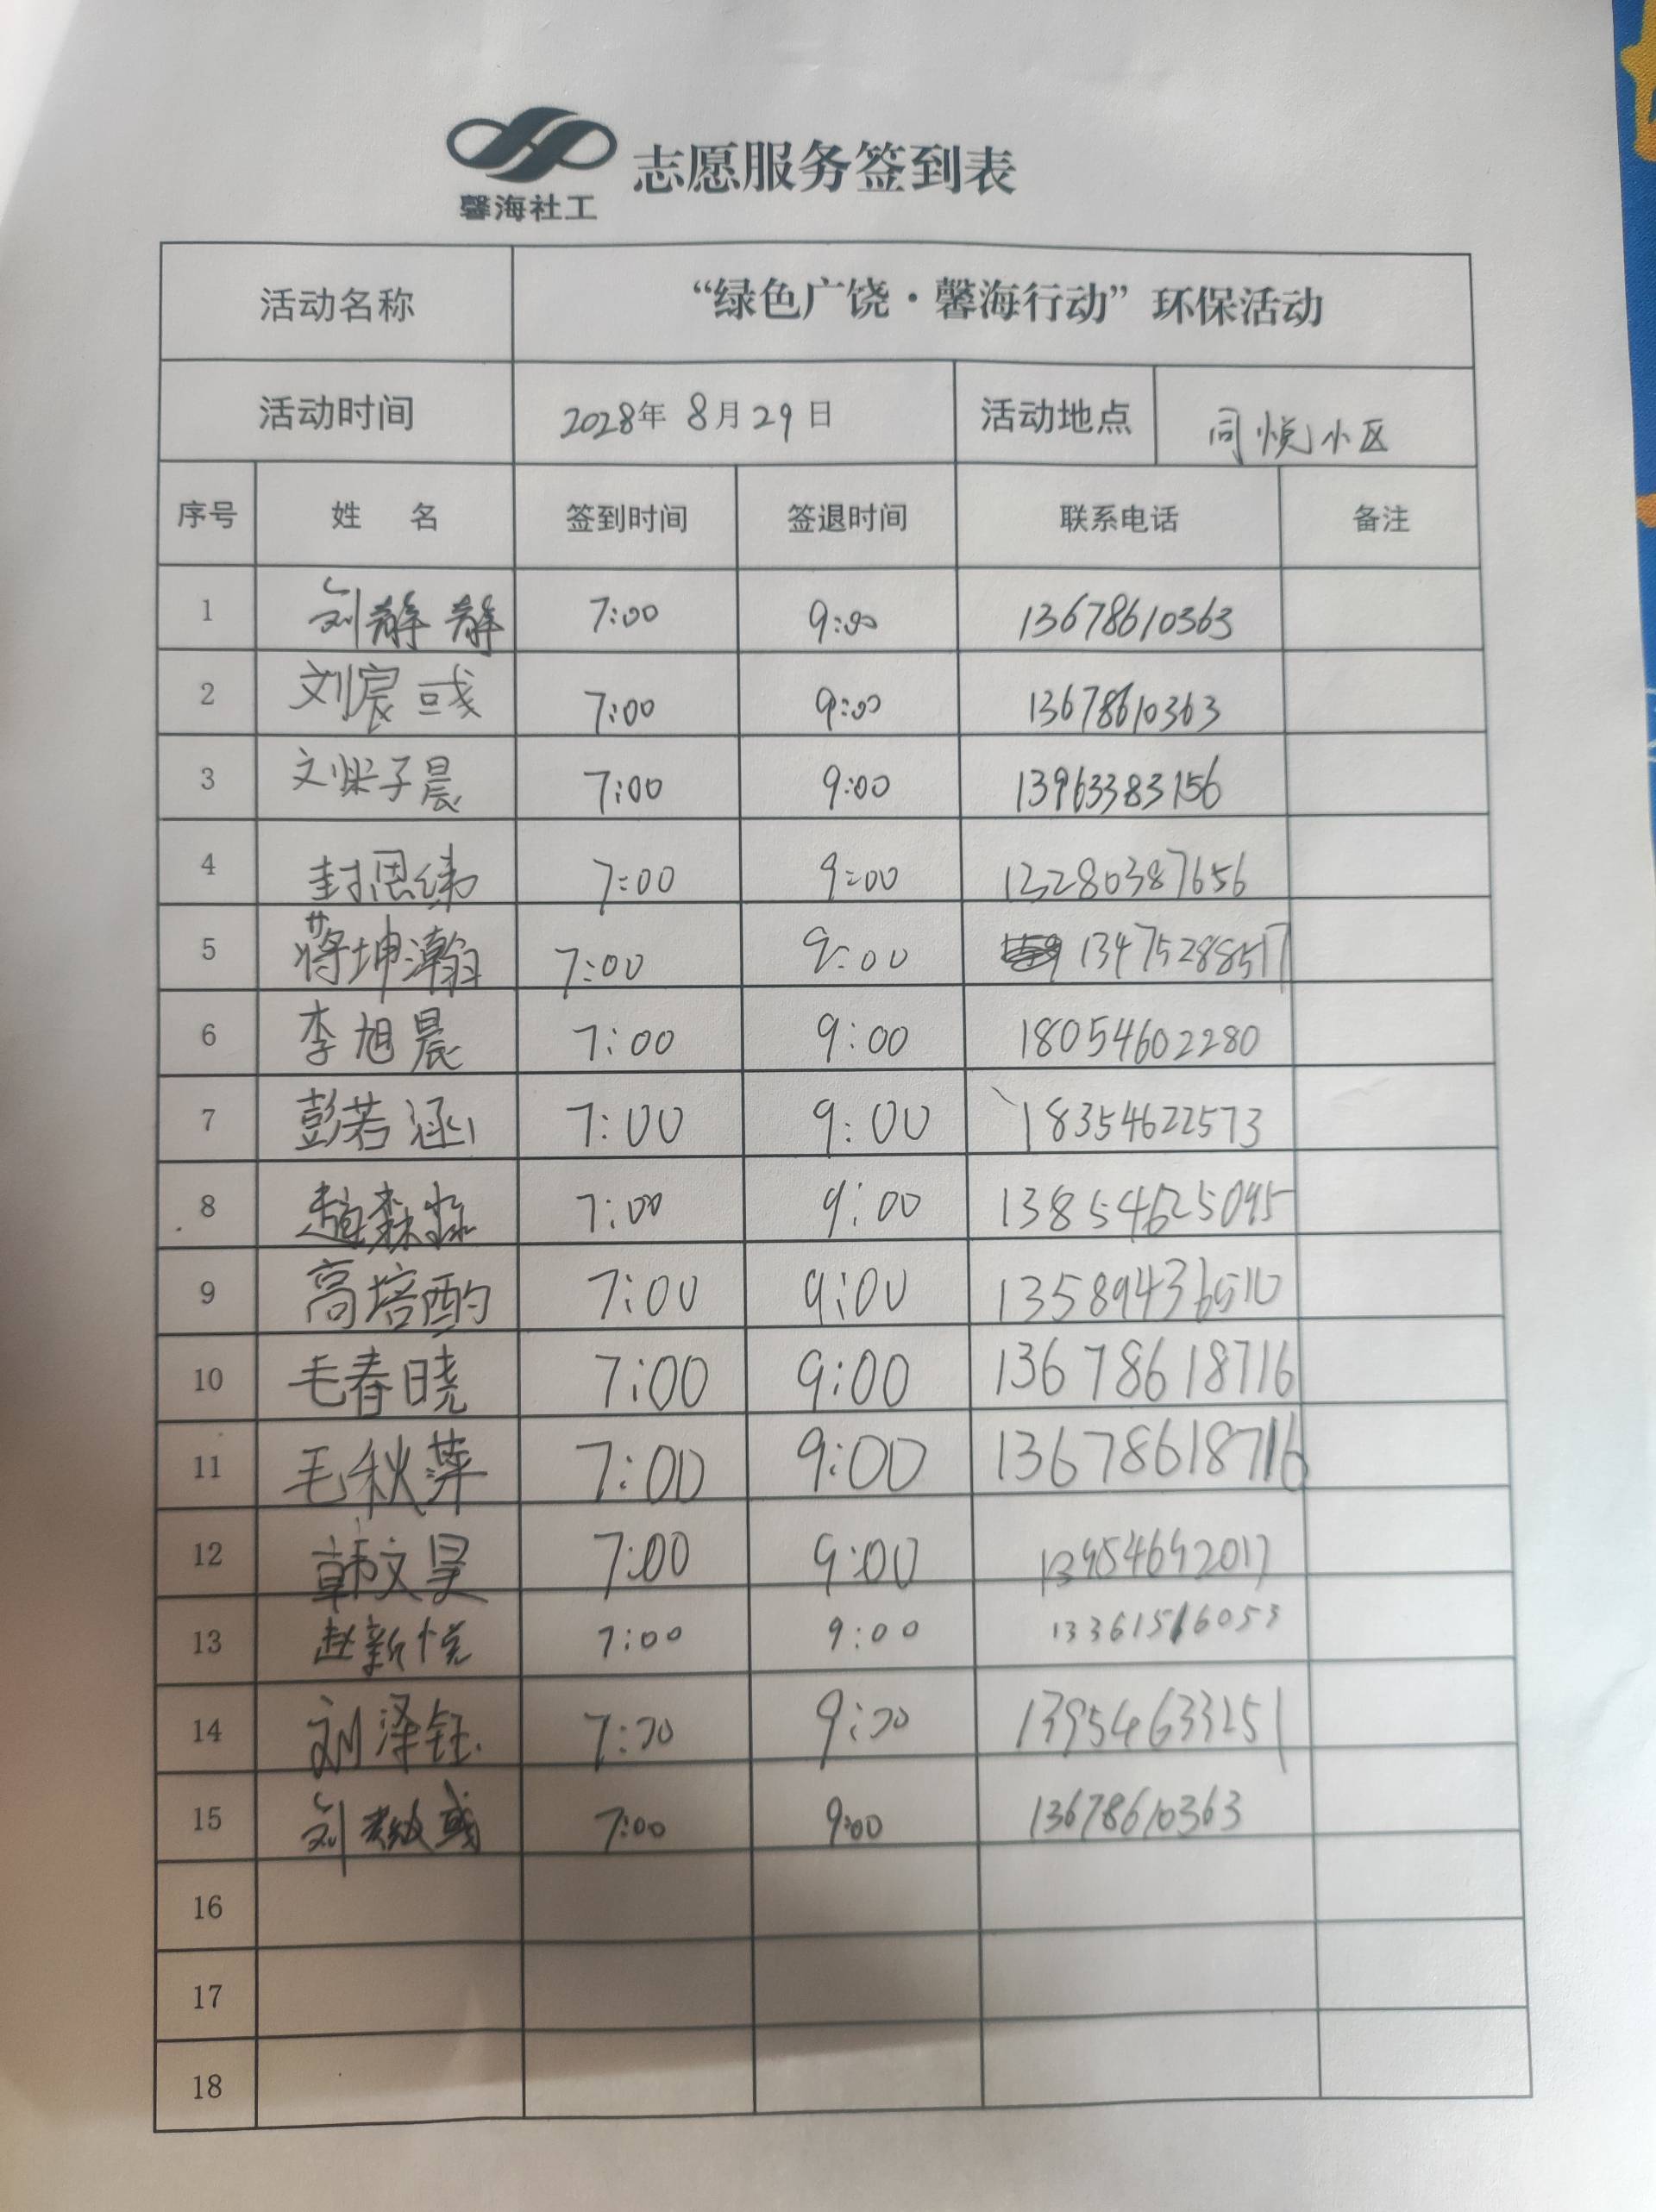 馨海社工
志愿服务签到表
活动名称 “绿色广饶·馨海行动”环保活动
活动时间 2028年 8月29日 活动地点 同悦小区
序号 姓 名 签到时间 签退时间 联系电话 备注
1 刘静静 7:00 9:00 13678610363
2 刘宸彧 7:00 9:00 13678610363
3 刘梁子晨 7:00 9:00 13963383156
4 封思纬 7:00 9:00 13280387656
5 蒋坤瀚 7:00 9:00 13475288517
6 李旭晨 7:00 9:00 18054602280
7 彭若涵 7:00 9:00 18354622573
8 赵森淼 7:00 9:00 13854625095
9 高培酌 7:00 9:00 13589436510
10 毛春晓 7:00 9:00 13678618716
11 毛秋萍 7:00 9:00 13678618716
12 韩文昊 7:00 9:00 13954692017
13 赵新悦 7:00 9:00 13361516053
14 刘泽钰 7:00 9:00 13954633251
15 刘 7:00 9:00 13678610363
16
17
18